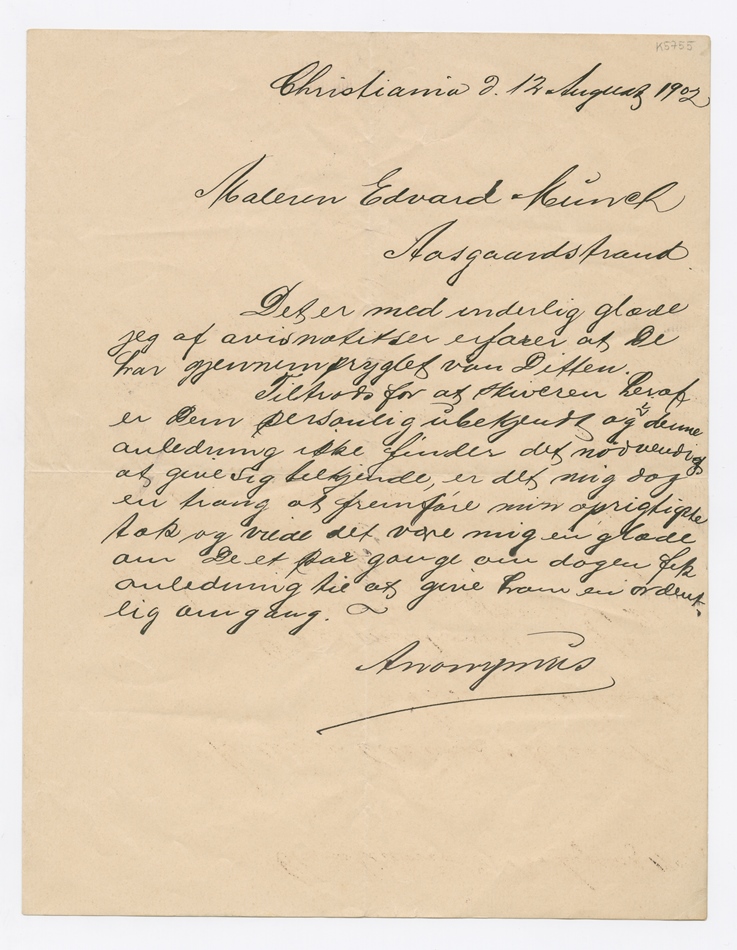 K5755
Christiania d. 12 August 1902
Maleren Edvard Münch
Aasgaardstrand.
Det er med inderlig glæde
jeg af avisnotitser erfarer at De
har gjennempryglet van Ditten.
Tiltrods for at skiveren heraf
er Dem personlig ubekjendt og i denne
anledning ikke finder det nødvendigt
at give sig tilkjende, er det mig dog
en trang at fremføre min oprigtigste
tak og vilde det være mig en glæde
om De et par gange om dagen fik
anledning til at give ham en ordent-
lig omgang. ~
Anonymus